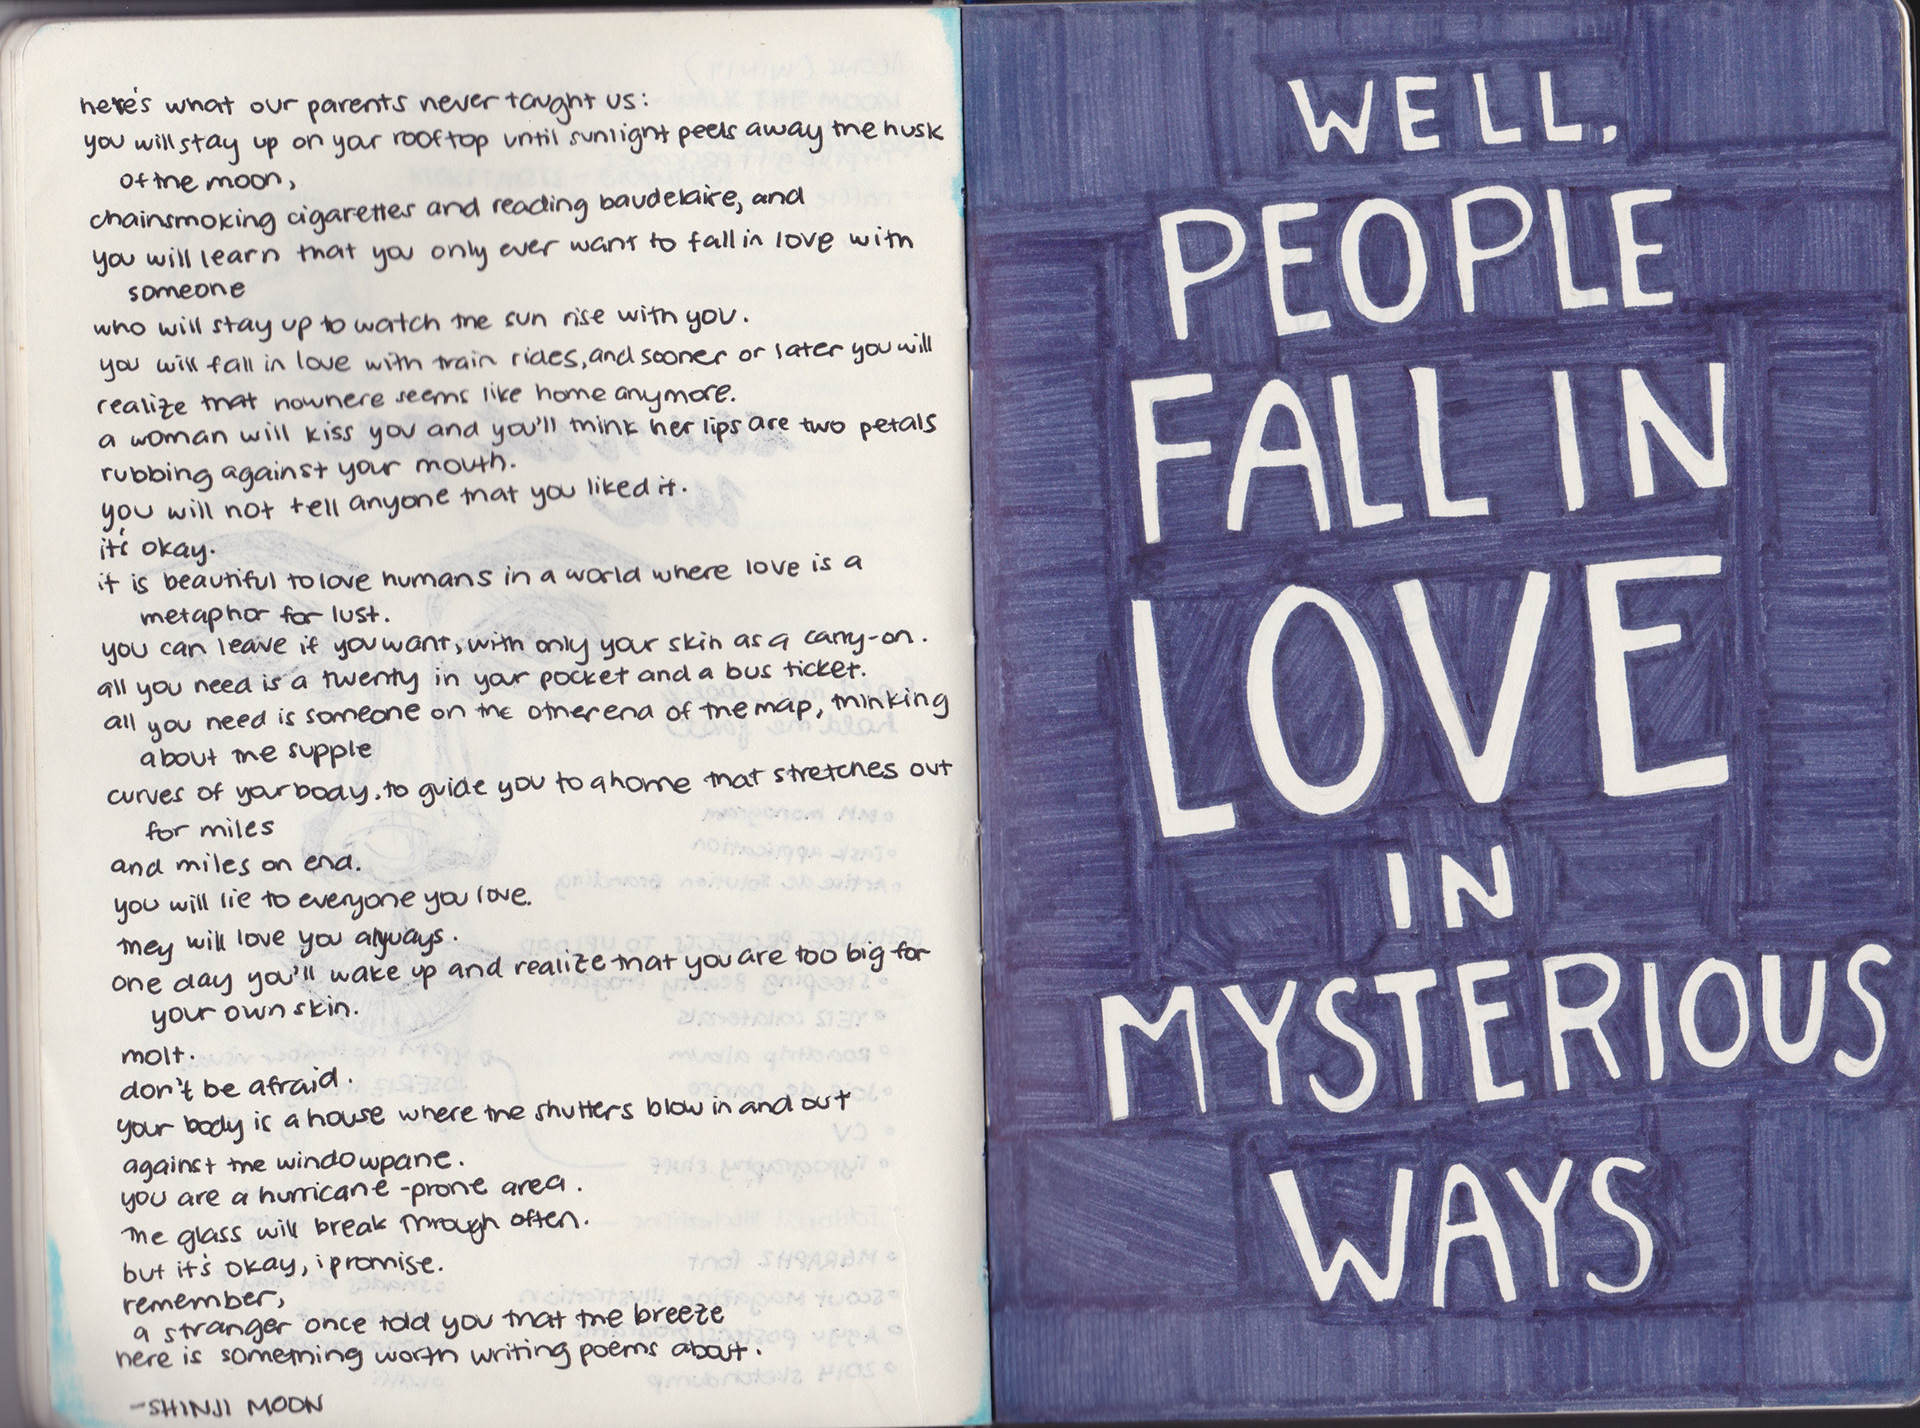 here's what our parents never taught us:
you will stay up on your rooftop until sunlight peels away the husk
of the moon,
chainsmoking cigarettes and reading baudelaire, and
you will learn that you only ever want to fall in love with
someone
who will stay up to watch the sun rise with you.
you will fall in love with train rides, and sooner or later you will
realize that nowhere seems like home anymore.
a woman will kiss you and you'll think her lips are two petals
rubbing against your mouth.
you will not tell anyone that you liked it.
it's okay.
it is beautiful to love humans in a world where love is a
metaphor for lust.
you can leave if you want, with only your skin as a carry-on.
all you need is a twenty in your pocket and a bus ticket.
all you need is someone on the other end of the map, thinking
about the supple
curves of your body, to guide you to a home that stretches out
for miles
and miles on end.
you will lie to everyone you love.
they will love you always.
one day you'll wake up and realize that you are too big for
your own skin.
molt.
don't be afraid.
your body is a house where the shutters blow in and out
against the windowpane.
you are a hurricane-prone area.
the glass will break through often.
but it's okay, i promise.
remember,
a stranger once told you that the breeze
here is something worth writing poems about.
-SHINJI MOON
WELL,
PEOPLE
FALL IN
LOVE
IN
MYSTERIOUS
WAYS